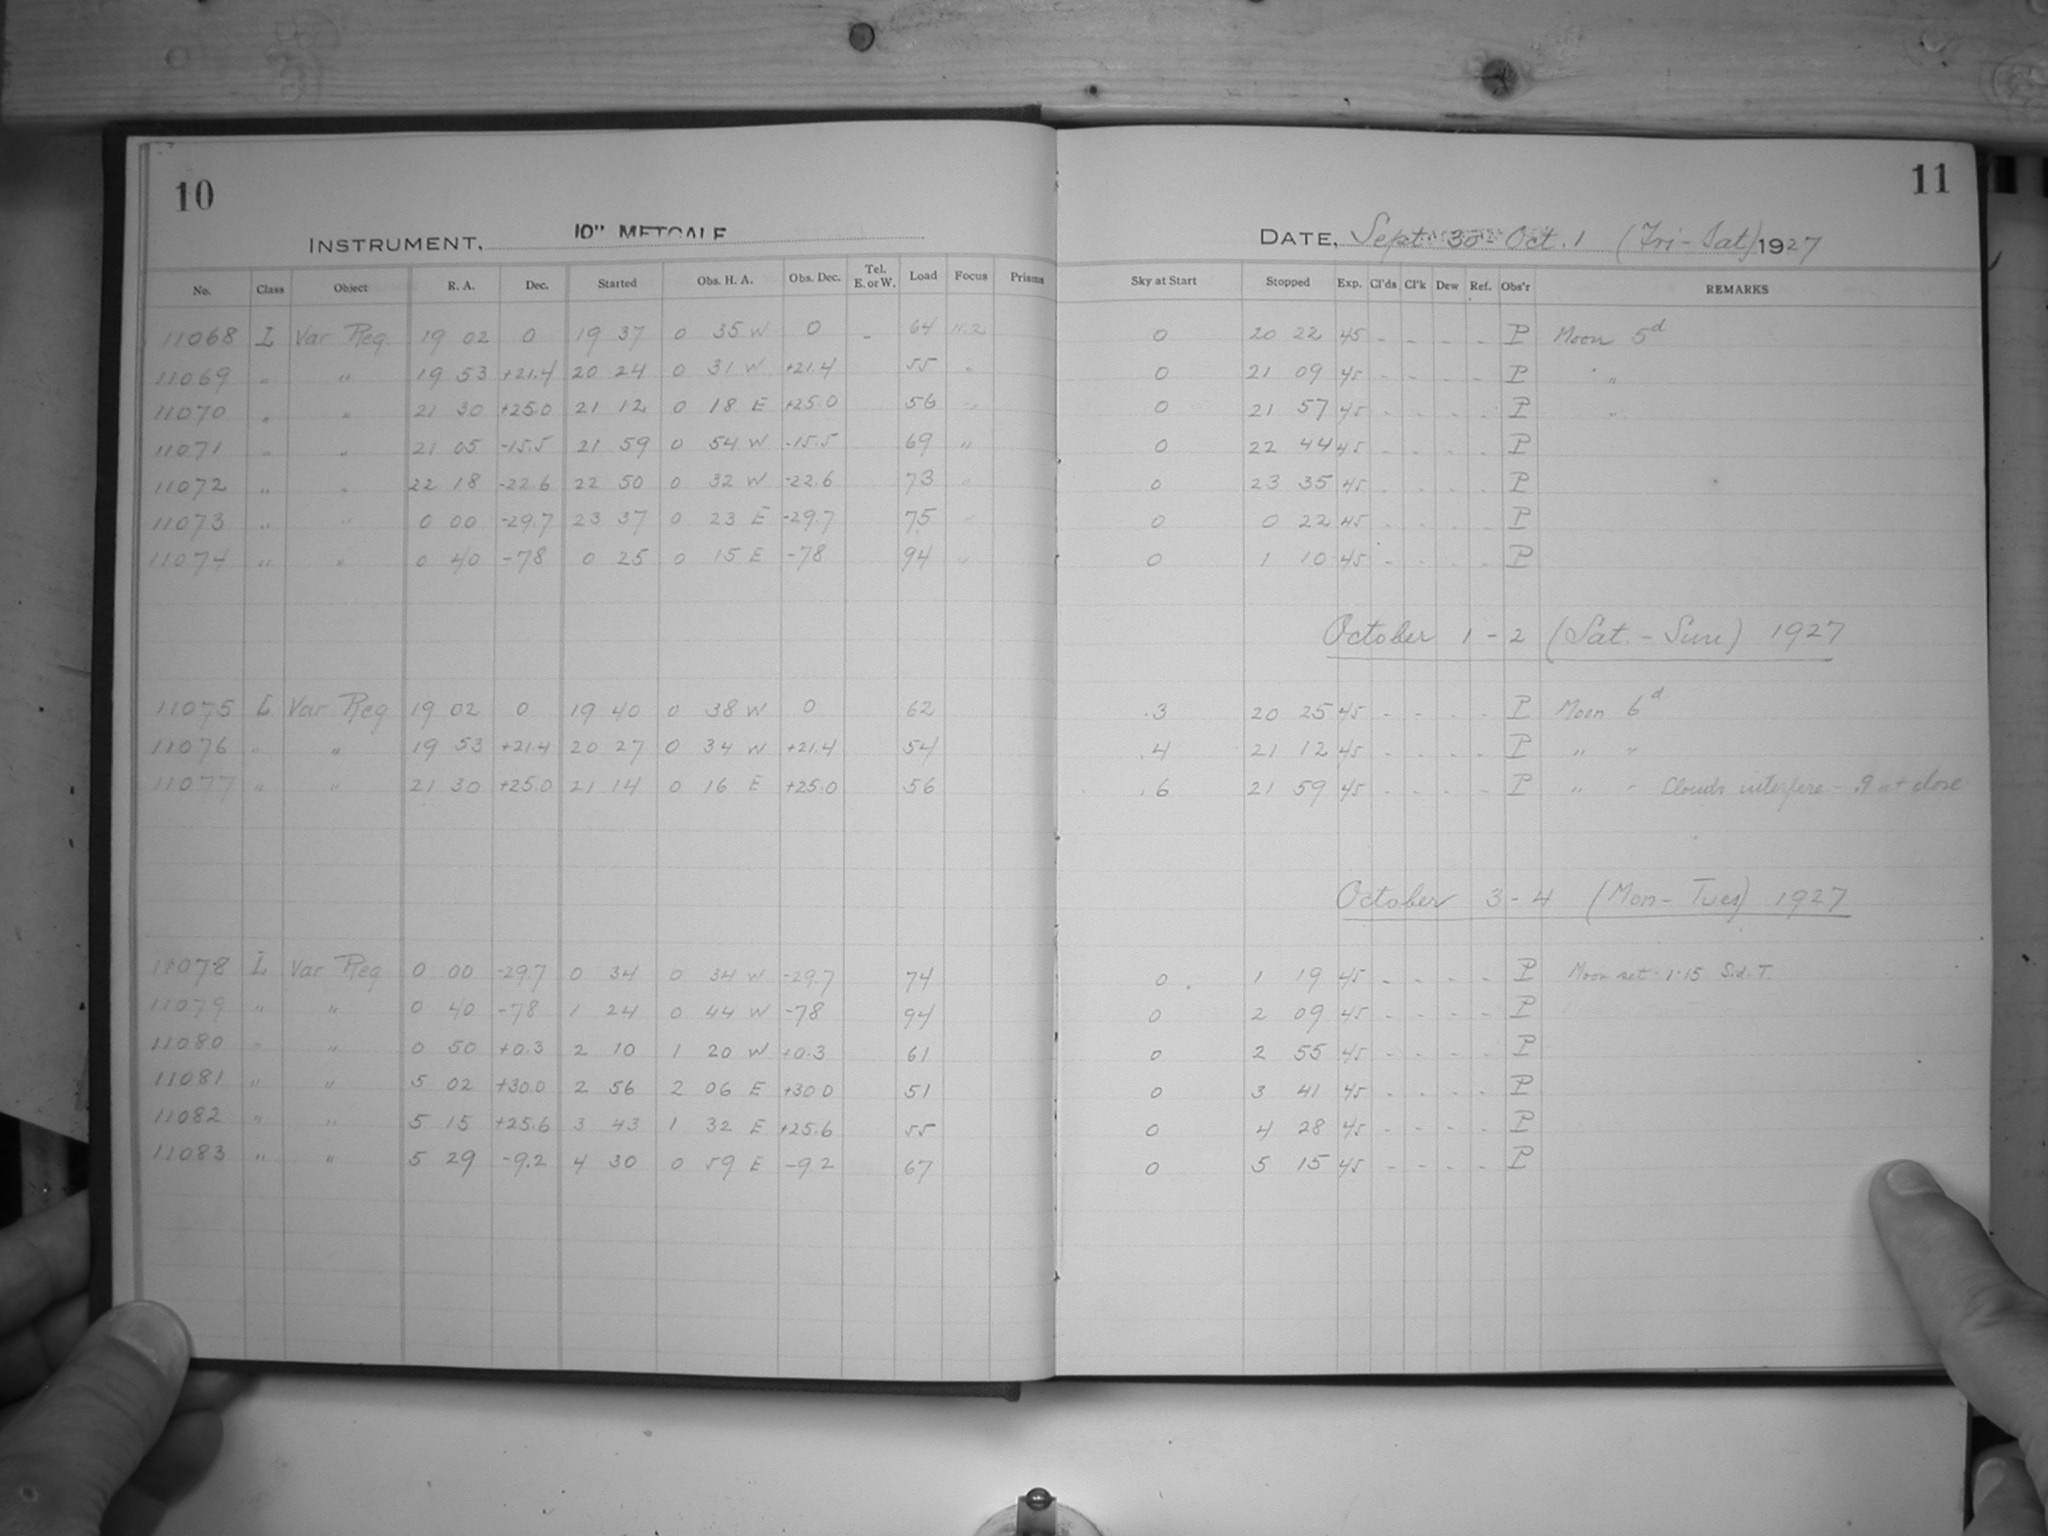 10
INSTRUMENT, 10" METCALF
No. Class Object R. A. Dec. Started Obs. H. A. Obs. Dec. Tel. E. or W. Load Focus Prisms
11068 L Var Reg 19 02 0 19 37 0 35 W 0 - 64 11.2
11069 " " 19 53 +21.4 20 24 0 31 W +21.4 55 "
11070 " " 21 30 +25.0 21 12 0 18 E +25.0 56 "
11071 " " 21 05 -15.5 21 59 0 54 W -15.5 69 "
11072 " " 22 18 -22.6 22 50 0 32 W -22.6 73 "
11073 " " 0 00 -29.7 23 37 0 23 E -29.7 75 "
11074 " " 0 40 -78 0 25 0 15 E -78 94 "
11075 L Var Reg 19 02 0 19 40 0 38 W 0 62
11076 " " 19 53 +21.4 20 27 0 34 W +21.4 54
11077 " " 21 30 +25.0 21 14 0 16 E +25.0 56
11078 L Var Reg 0 00 -29.7 0 34 0 34 W -29.7 74
11079 " " 0 40 -78 1 24 0 44 W -78 94
11080 " " 0 50 +0.3 2 10 1 20 W +0.3 61
11081 " " 5 02 +30.0 2 56 2 06 E +30.0 51
11082 " " 5 15 +25.6 3 43 1 32 E +25.6 55
11083 " " 5 29 -9.2 4 30 0 59 E -9.2 67
11
DATE, Sept. 30 - Oct. 1 (Fri - Sat) 1927
Sky at Start Stopped Exp. Cl'ds Cl'k Dew Ref. Obs'r REMARKS
0 20 22 45 - - - - P Moon 5d
0 21 09 45 - - - - P "
0 21 57 45 - - - - P "
0 22 44 45 - - - - P
0 23 35 45 - - - - P
0 0 22 45 - - - - P
0 1 10 45 - - - - P
October 1 - 2 (Sat. - Sun) 1927
.3 20 25 45 - - - - P Moon 6d
.4 21 12 45 - - - - P " "
.6 21 59 45 - - - - P " " Clouds interfere - .9 at close
October 3 - 4 (Mon - Tues) 1927
0 1 19 45 - - - - P Moon set 1:15 Sid. T.
0 2 09 45 - - - - P
0 2 55 45 - - - - P
0 3 41 45 - - - - P
0 4 28 45 - - - - P
0 5 15 45 - - - - P